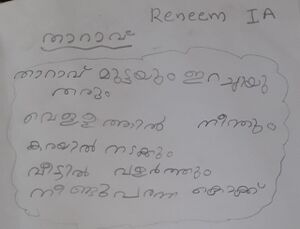 Reneem IA
താറാവ്
താറാവ് മുട്ടയും ഇറച്ചിയു
തരും
വെള്ളത്തിൽ നീന്തും
കരയിൽ നടക്കും
വീട്ടിൽ വളർത്തും
നീണ്ടുപരന്ന കൊക്ക്